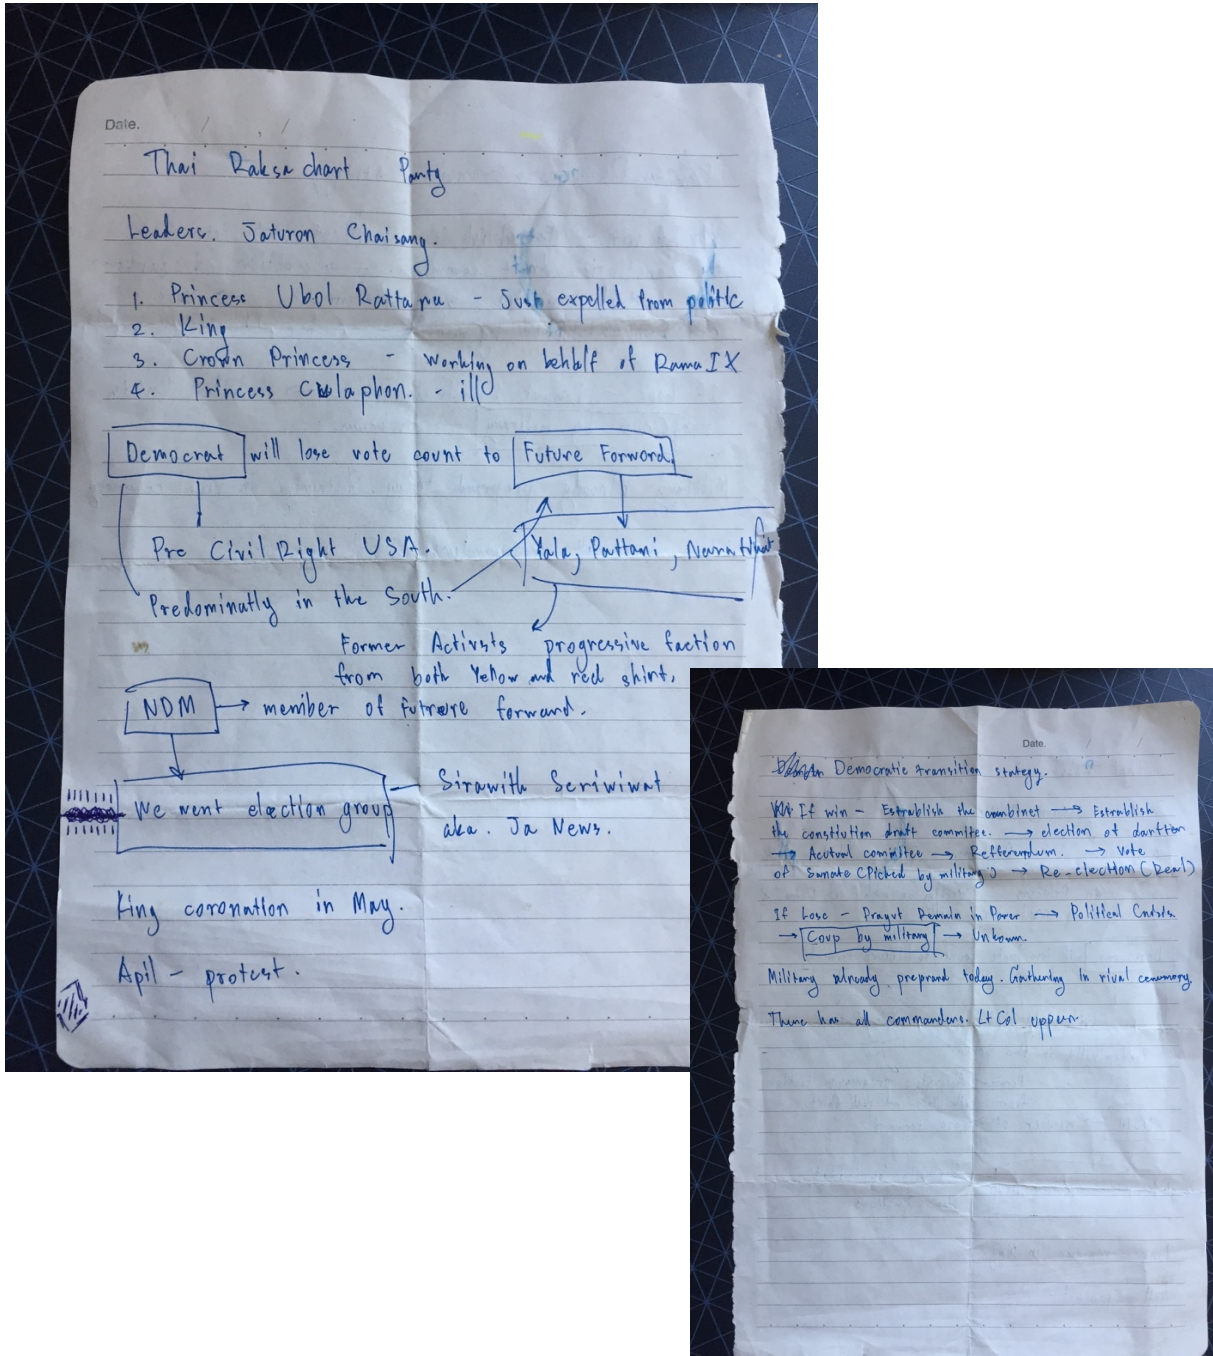 Date. / / /
Thai Raksa chart Party
Leaders. Jaturon Chaisang.
1. Princess Ubol Rattana - expelled from politic
2. King
3. Crown Princess - working on behalf of Rama IX
4. Princess Chulaphon. - ill
Democrat will lose vote count to Future Forword
Pre Civil Right USA. Yala, Pattani, Narathiwat
Predominatly in the South.
Former Activsts progressive faction
from both Yellow and red shirt,
NDM → member of futrure forward.
We went election group
Sirawith Seriwiwat
aka. Ja News.
King coronation in May.
Apil - protest.
Date. / /
Democratic transition stategy.
If win - Establish the → Establish
the constitution draft committee. → election of
→ Acutual committee → Refferendum. → Vote
of Sanate (Picked by military) → Re-election (Real)
If Lose - Prayut Remain in Power → Political
→ Coup by military → Unkown.
Military already today. Gathering in rival
There has all commanders. Lt Col